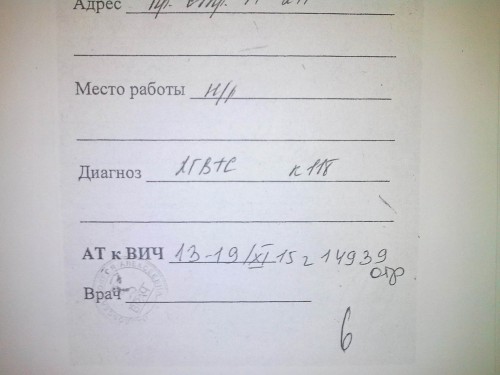 Адрес
Место работы н/р
Диагноз ХГВ+С к 118
АТ к ВИЧ 13-19/XI 15 г 14939
отр
Врач
6